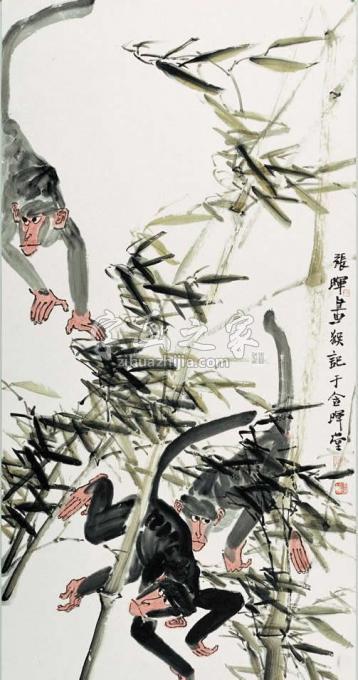 張暉畫猴記于含暉堂
字画之家
zihuazhijia.com